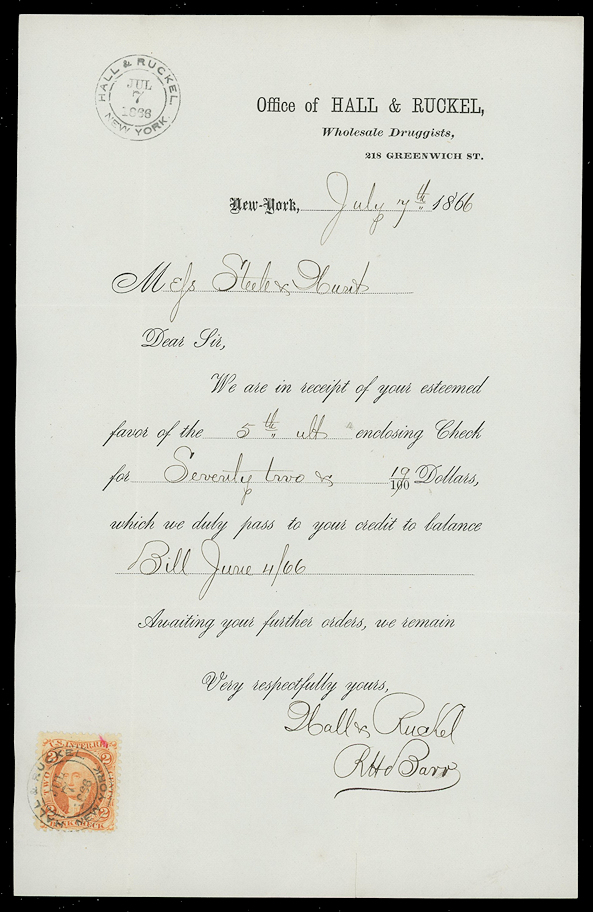 HALL & RUCKEL.
JUL
7
1866
NEW YORK.
Office of HALL & RUCKEL,
Wholesale Druggists,
218 GREENWICH ST.
New-York, July 7th 1866
Messs Steele & Hunt
Dear Sir,
We are in receipt of your esteemed
favor of the 5th ult enclosing Check
for Seventy two & 19/100 Dollars,
which we duly pass to your credit to balance
Bill June 4/66
Awaiting your further orders, we remain
Very respectfully yours,
Hall & Ruckel
Barr
U.S. INTER
2 2
HALL & RUCKEL
JUL
7
NEW YORK
2
CHECK